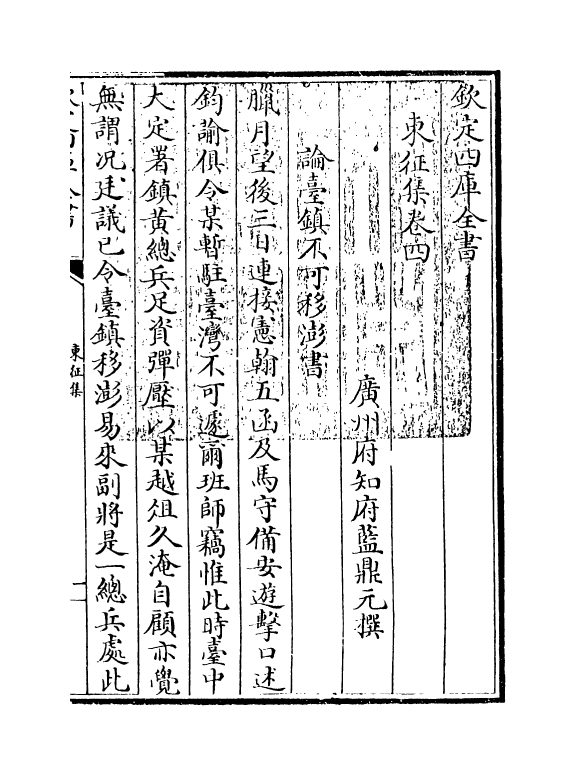 欽定四庫全書
東征集卷四
廣州府知府藍鼎元撰
論臺鎮不可移澎書
臘月望後三日連接憲翰五函及馬守備安遊擊口述
鈞諭俱令某暫駐臺灣不可遽爾班師竊惟此時臺中
大定署鎮黃總兵足資彈壓以某越俎久淹自顧亦覺
無謂况廷議已令臺鎮移澎易來副將是一總兵處此
東征集
一